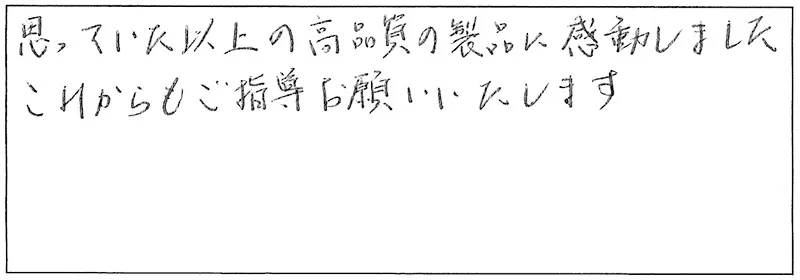 思っていた以上の高品質の製品に感動しました
これからもご指導お願いいたします